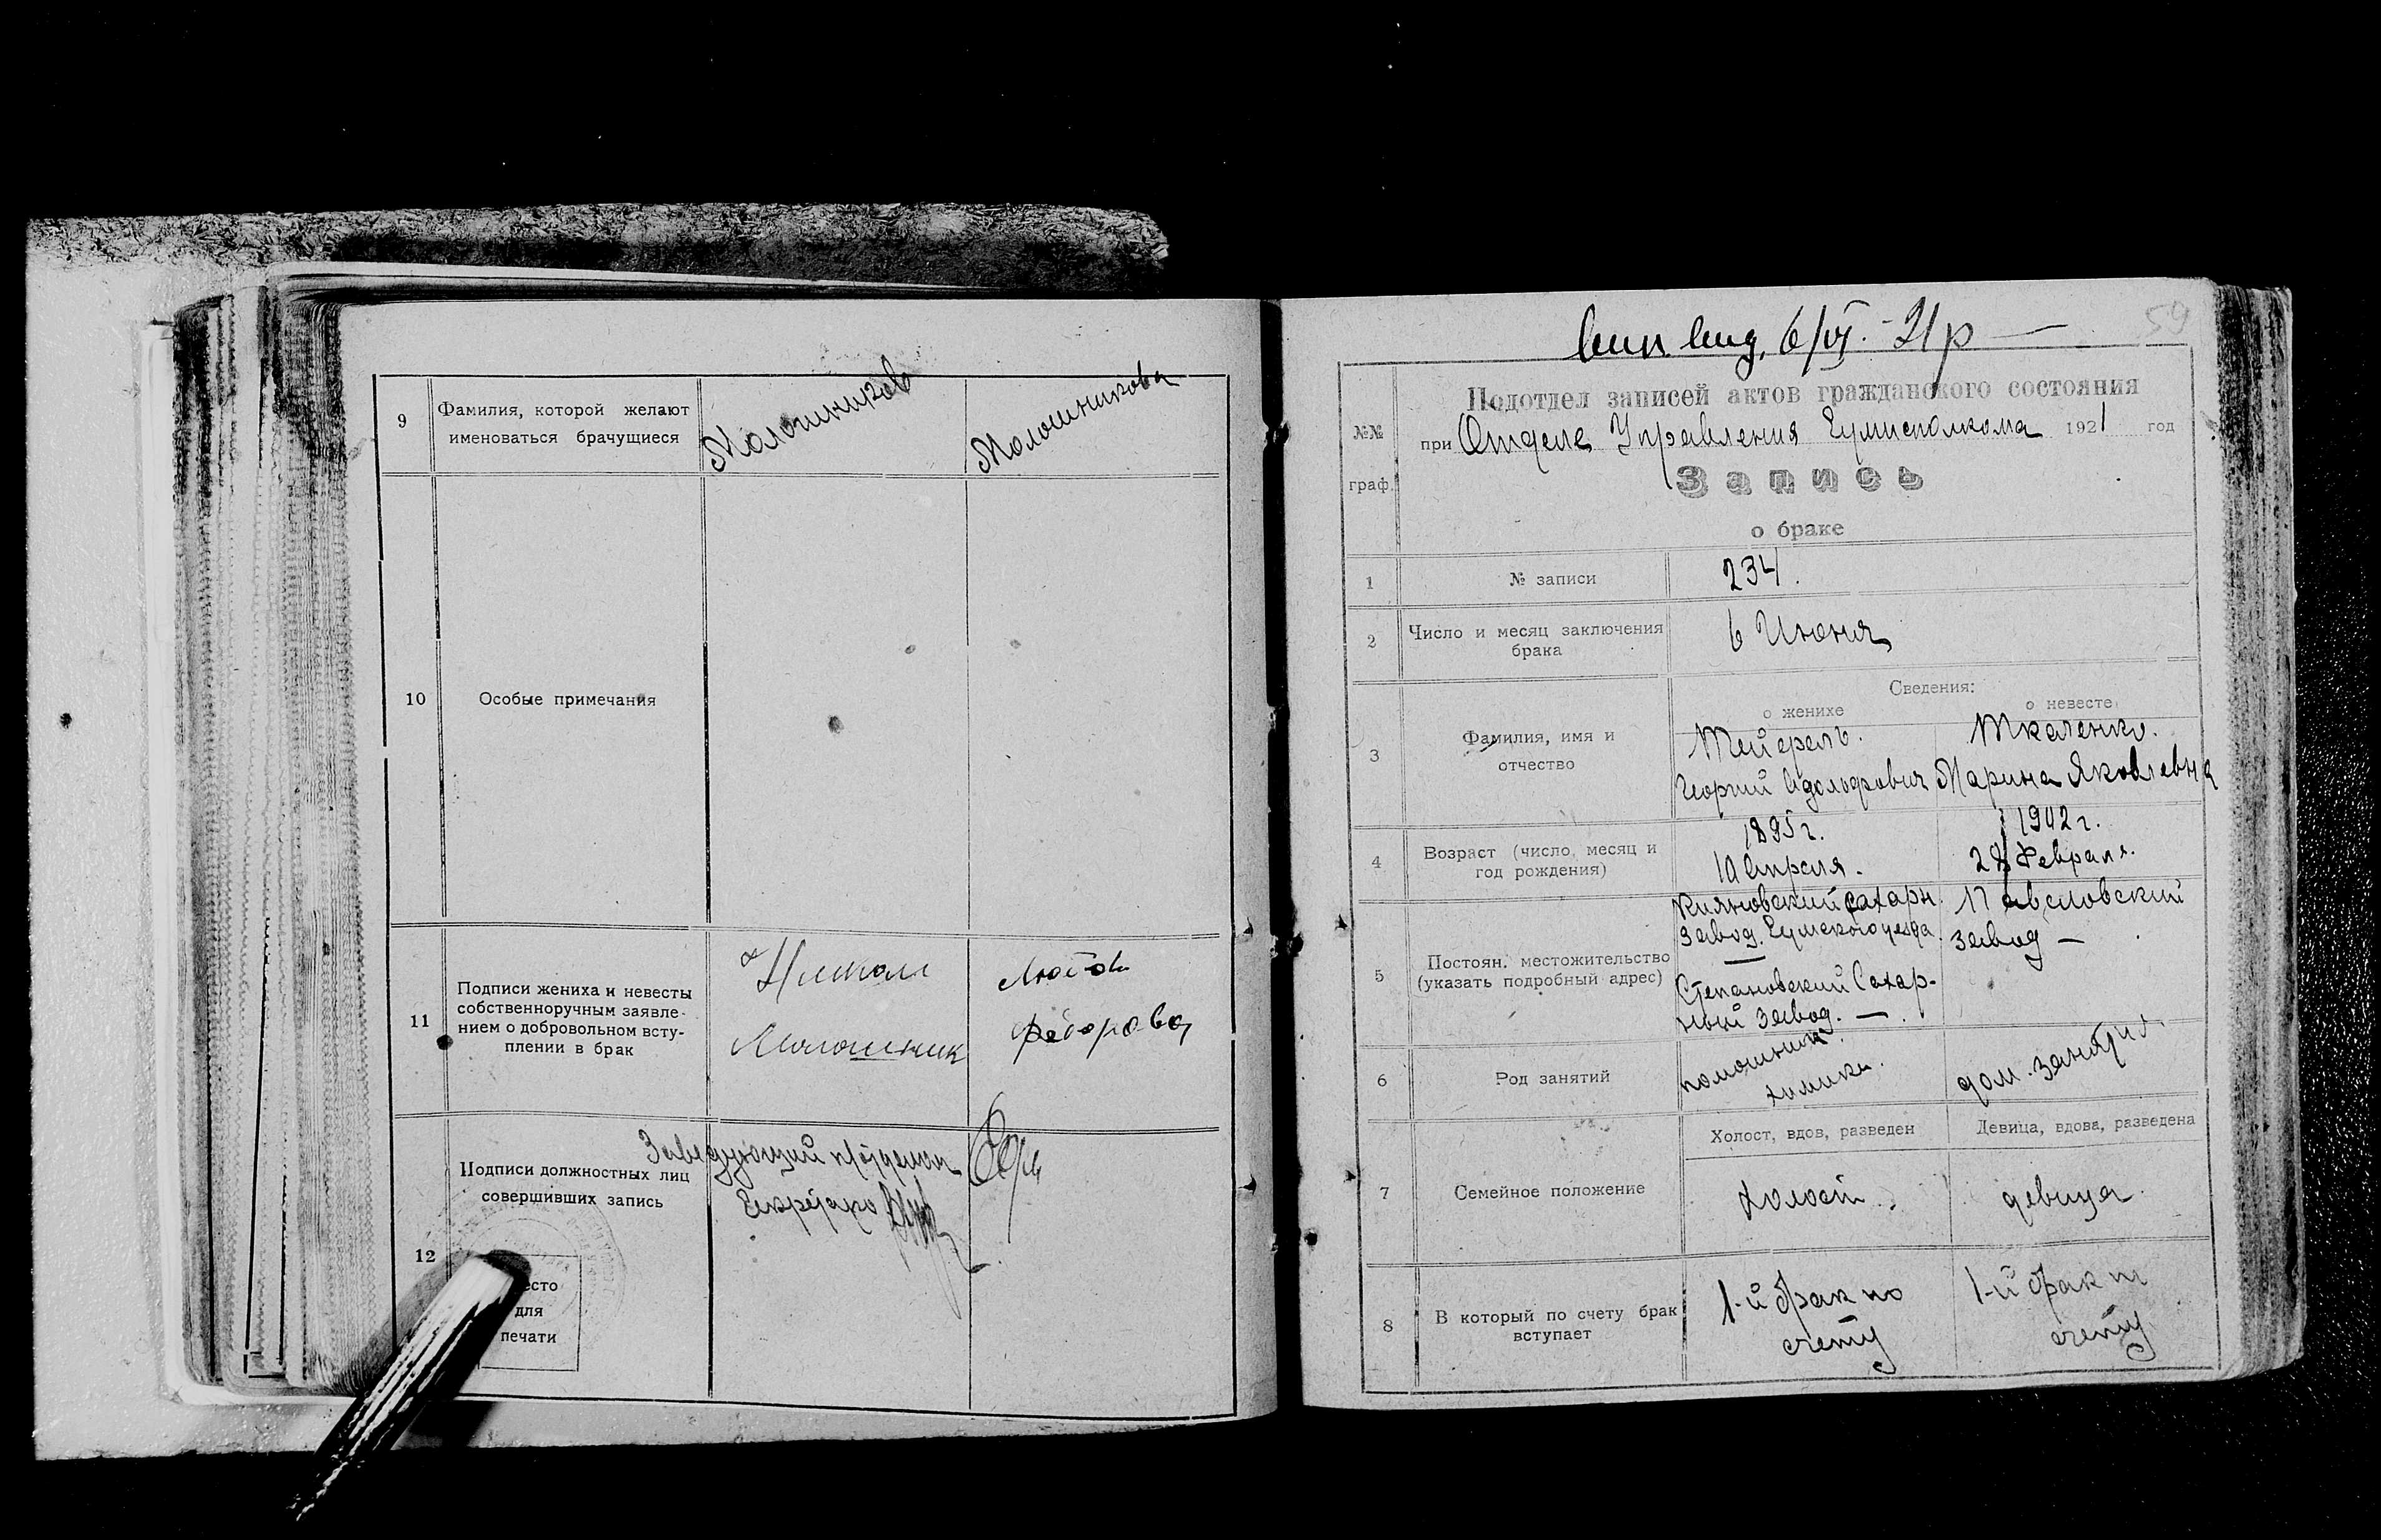 9
Фамилия, которой желают
именоваться брачущиеся
Молошников
Молошникова
10
Особые примечания
11
Подписи жениха и невесты
собственноручным заявле-
нием о добровольном всту-
плении в брак
Молошник
Федорова
12
Подписи должностных лиц
совершивших запись
Заведующий п/отделом
Секретарь
для
печати
59
6/VI - 21 р
№№
граф.
Подотдел записей актов гражданского состояния
при Отделе Управления Сумисполкома 1921 год
Запись
о браке
1
№ записи
234.
2
Число и месяц заключения
брака
6 Июня
Сведения:
о женихе
о невесте
3
Фамилия, имя и
отчество
Мейерель.
Георгий Адольфович
Ткаченко.
Марина Яковлевна
4
Возраст (число, месяц и
год рождения)
1895 г.
10 Апреля.
1902 г.
28 Февраля.
5
Постоян. местожительство
(указать подробный адрес)
Кияновский сахарн.
завод. Сумского уезда.
Степановский Сахар-
ный завод. —
Павловский
завод —
6
Род занятий
помошник
химика.
дом. занятия
7
Семейное положение
Холост, вдов, разведен
Девица, вдова, разведена
холост.
девица.
8
В который по счету брак
вступает
1-й брак по
счету
1-й брак по
счету